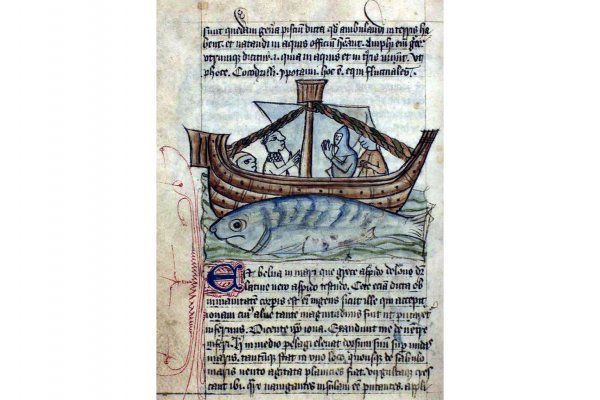 sunt quedam gen̄a pisciū dicta qđ ambulandi in terris ha
bent. et natandi in aquis officiū Amphi em̄ gre
utrumque dicitur .i. quia in aquis et in t̄ris uiuūt. ut
phoce. Cocodrilli. ypotami. hoc ē. equi fluctuales.
Est belua in mari que grece aspido delone dr̄
latine uero aspido testudo. Cete etiā dicta ob
inmanitatem corpis est eī ingens sicut ille qui excepit
ionam cuiꝰ aluꝰ tante magnitudinis fuit ut putaret̄
infernus. Dicente ip̄o iona. Exaudiuit me de uentre
inferi. in medio pelagi eleuat dorsum suū sup undas
maris. tantūque stat in uno loco. quousque de sabulo
maris uento agitata planities fiat. virgultaque cres
cant ibi. nauigantes insulam eē putantes. appli